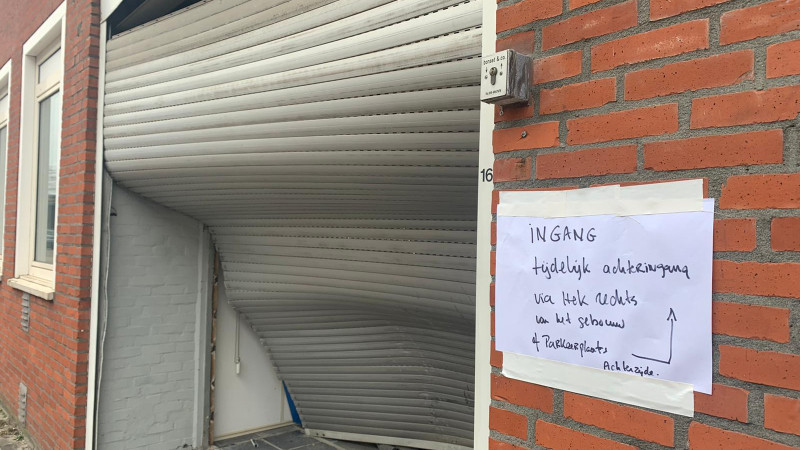 bonsel & co.
16
INGANG
tijdelijk achteringang
via Hek rechts
van het gebouw
of Parkeerplaats
Achterzijde.